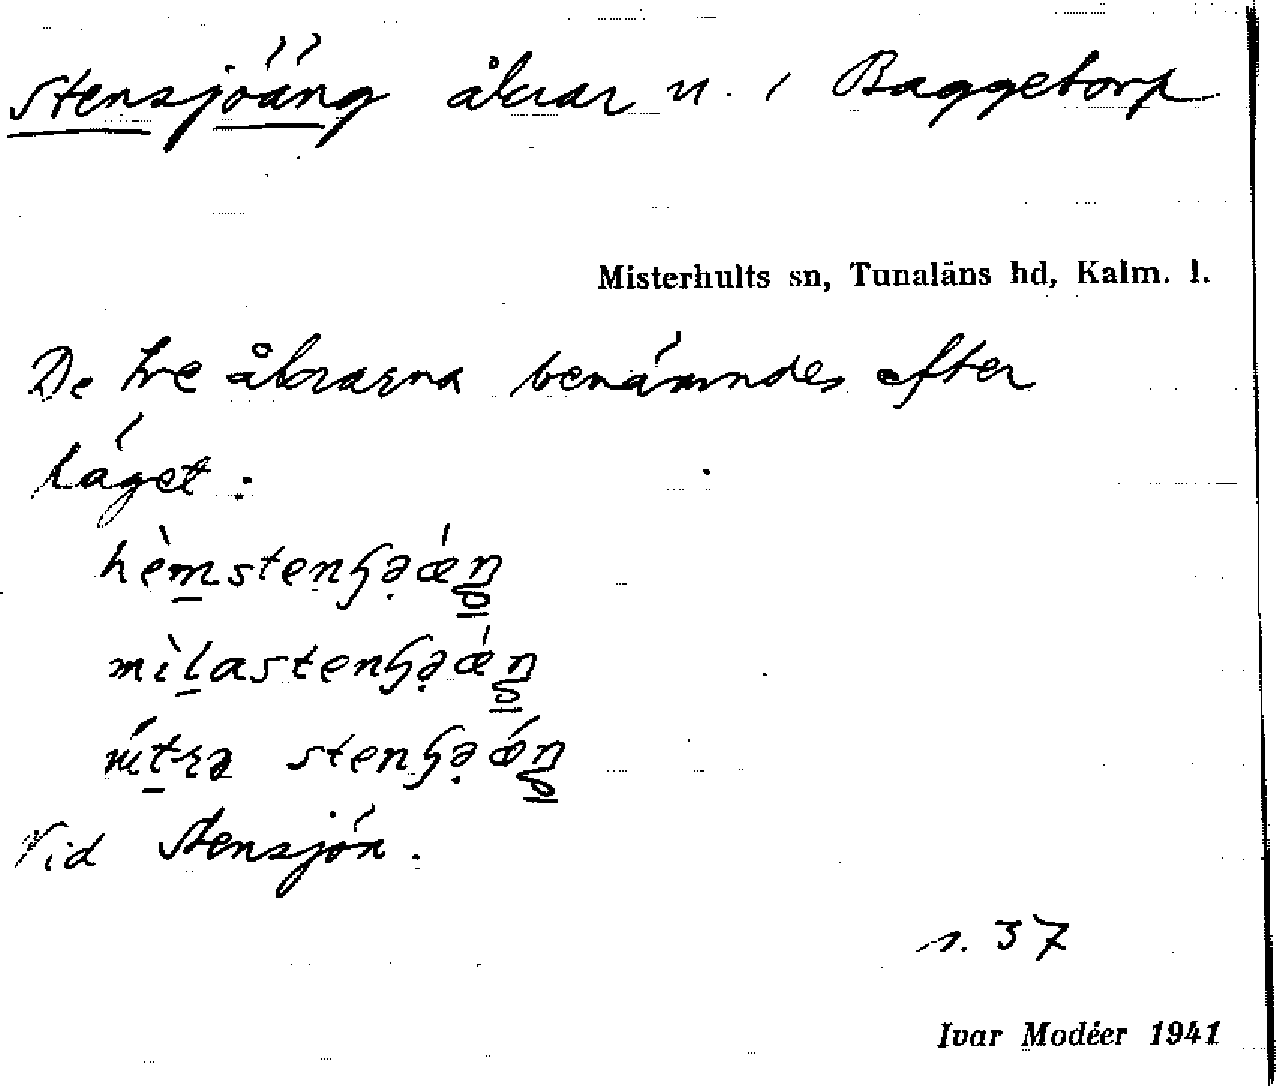 Stensjöäng åkrar n. i Baggetorp
Misterhults sn, Tunaläns hd, Kalm. l.
De tre åkrarna benämndes efter
läget:
Vid Stensjön.
s. 37
Ivar Modéer 1941